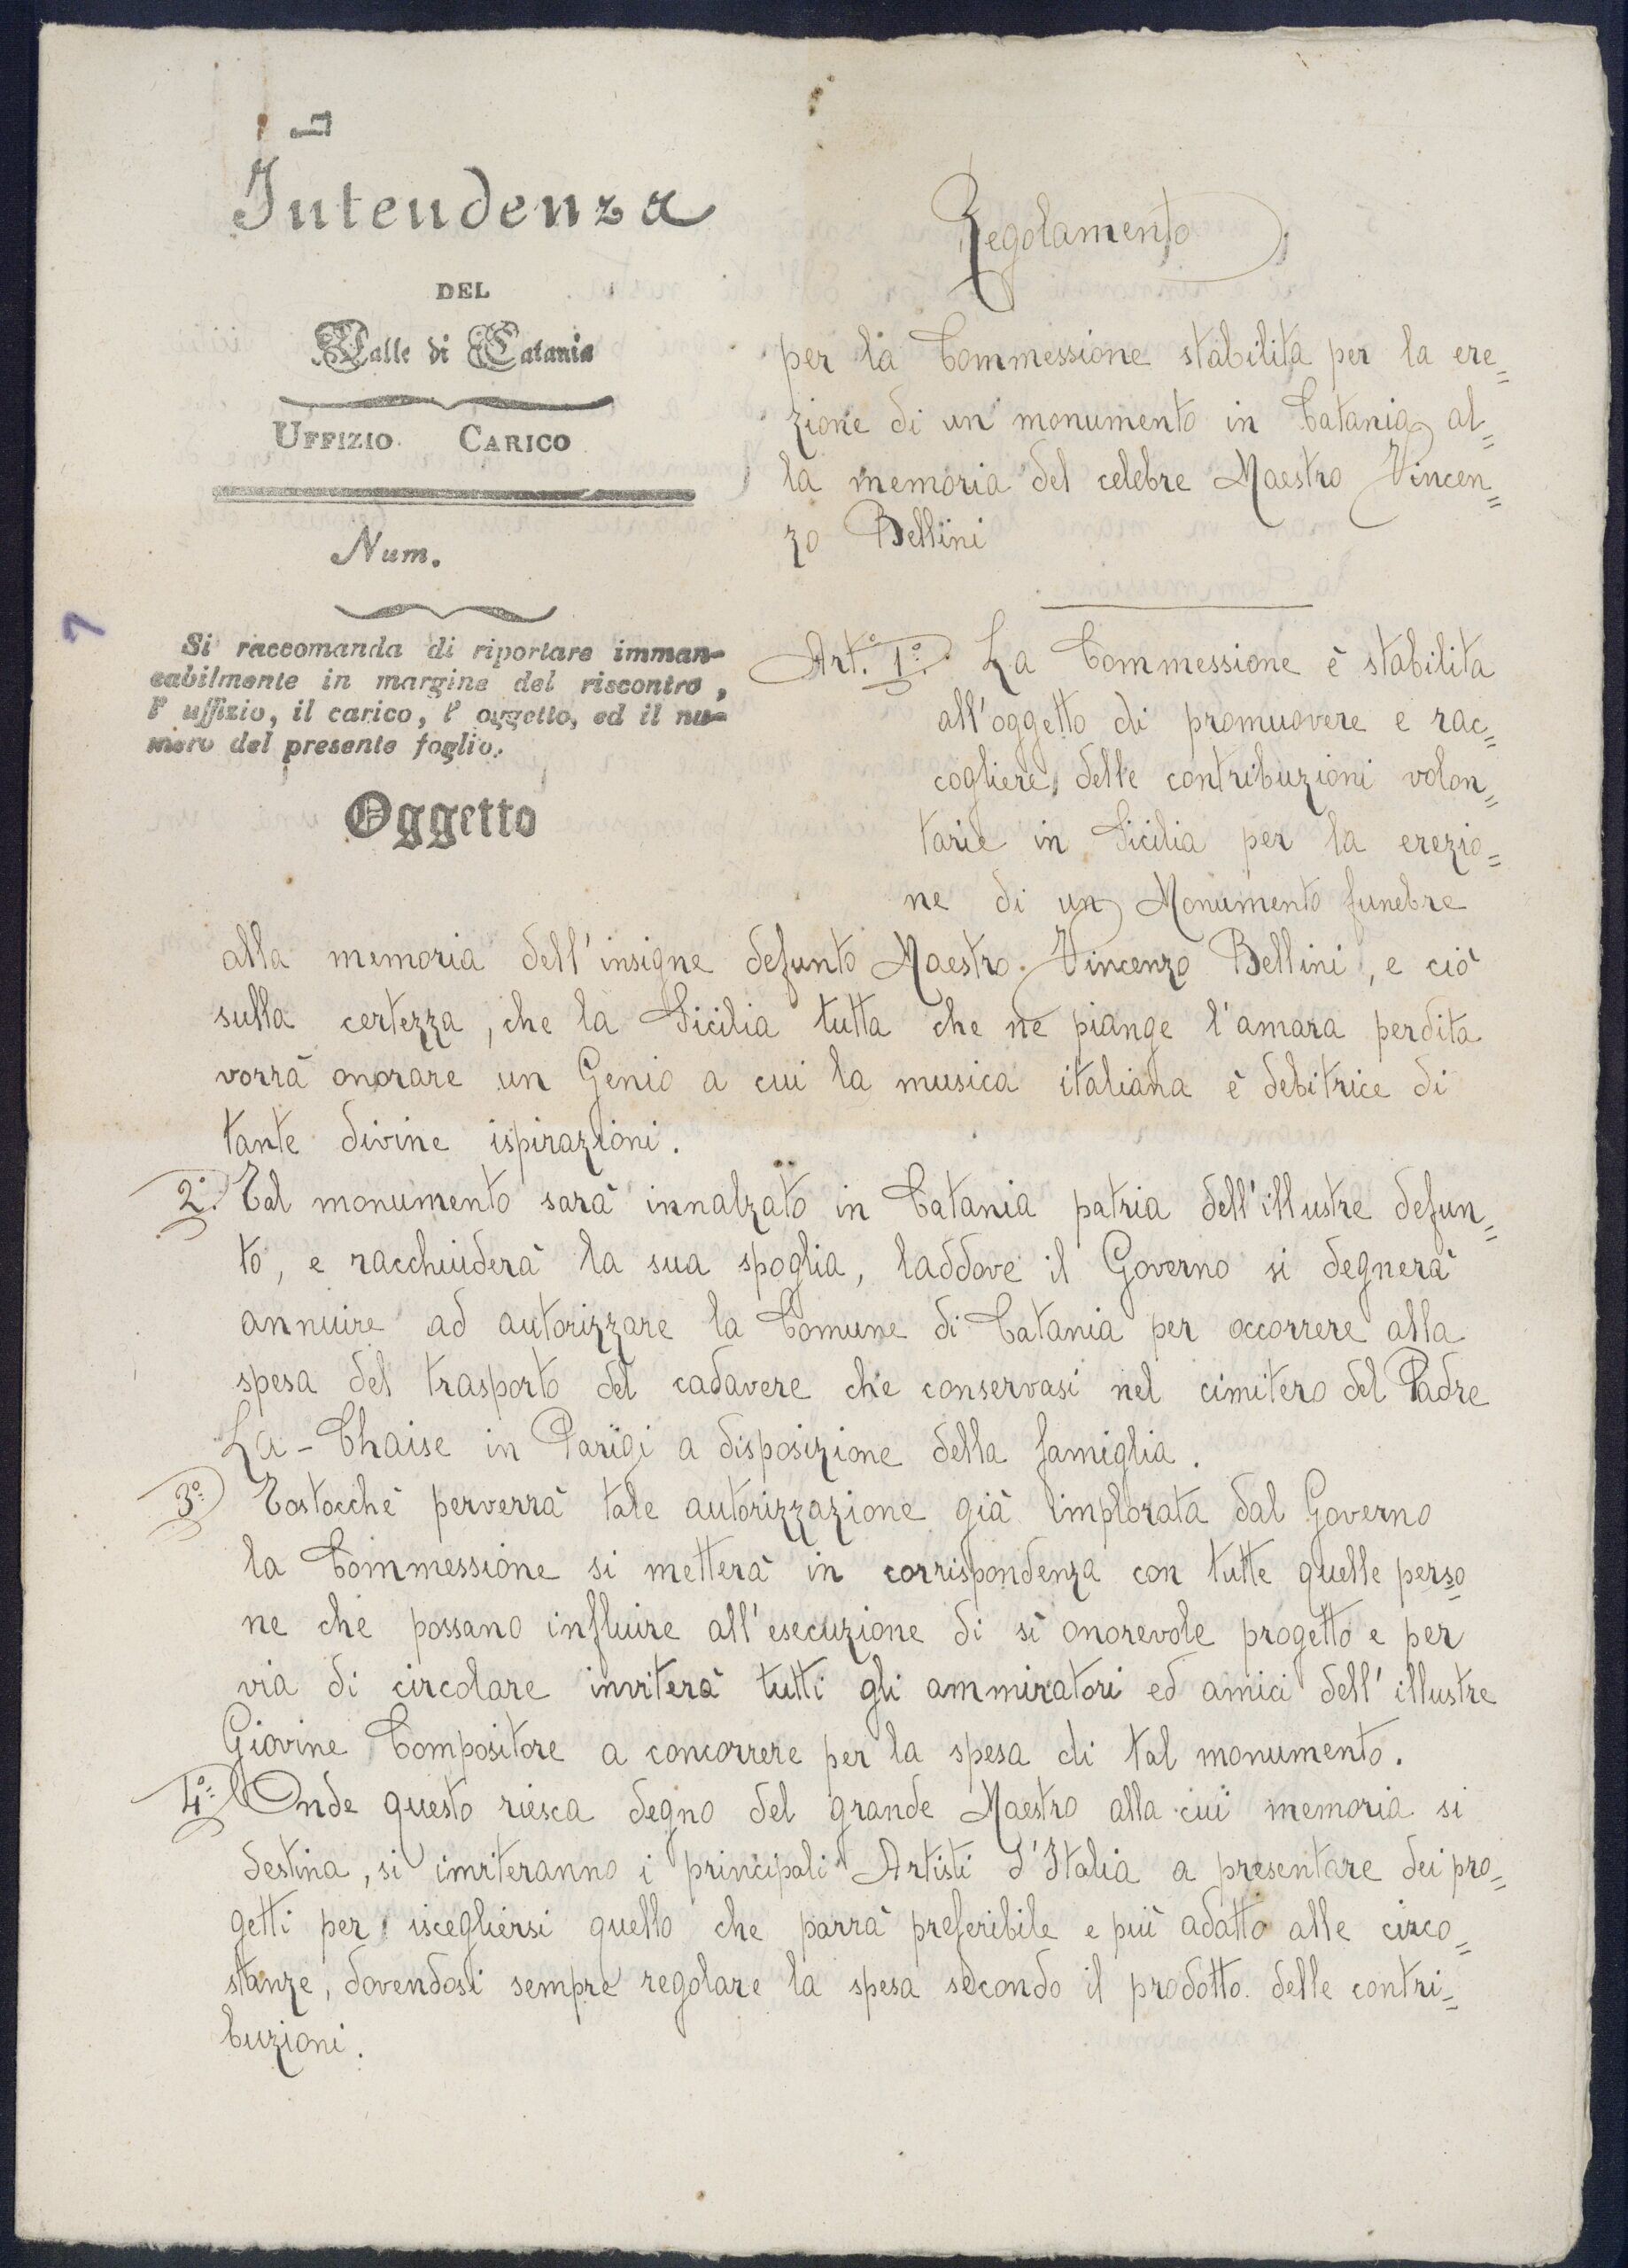 Intendenza
DEL
Valle di Catania
UFFIZIO CARICO
Num.
Si raccomanda di riportare imman-
cabilmente in margine del riscontro,
l'uffizio, il carico, l'oggetto, ed il nu-
mero del presente foglio.
Oggetto
Regolamento
per la Commessione stabilita per la ere=
zione di un monumento in Catania al=
la memoria del celebre Maestro Vincen=
zo Bellini
Art.° 1°. La Commessione è stabilita
all'oggetto di promuovere e rac=
cogliere delle contribuzioni volon=
tarie in Sicilia per la erezio=
ne di un Monumento funebre
alla memoria dell'insigne defunto Maestro Vincenzo Bellini, e ciò
sulla certezza, che la Sicilia tutta che ne piange l'amara perdita
vorrà onorare un Genio a cui la musica italiana è debitrice di
tante divine ispirazioni.
2° Tal monumento sarà innalzato in Catania patria dell'illustre defun=
to, e racchiuderà la sua spoglia, laddove il Governo si degnerà
annuire ad autorizzare la Comune di Catania per occorrere alla
spesa del trasporto del cadavere che conservasi nel cimitero del Padre
La-Chaise in Parigi a disposizione della famiglia.
3° Tostocchè perverrà tale autorizzazione già implorata dal Governo
la Commessione si metterà in corrispondenza con tutte quelle perso
ne che possano influire all'esecuzione di sì onorevole progetto e per
via di circolare inviterà tutti gli ammiratori ed amici dell'illustre
Giovine Compositore a concorrere per la spesa di tal monumento.
4° Onde questo riesca degno del grande Maestro alla cui memoria si
destina, si inviteranno i principali Artisti d'Italia a presentare dei pro=
getti per iscegliersi quello che parrà preferibile e più adatto alle circo=
stanze, dovendosi sempre regolare la spesa secondo il prodotto delle contri=
buzioni.